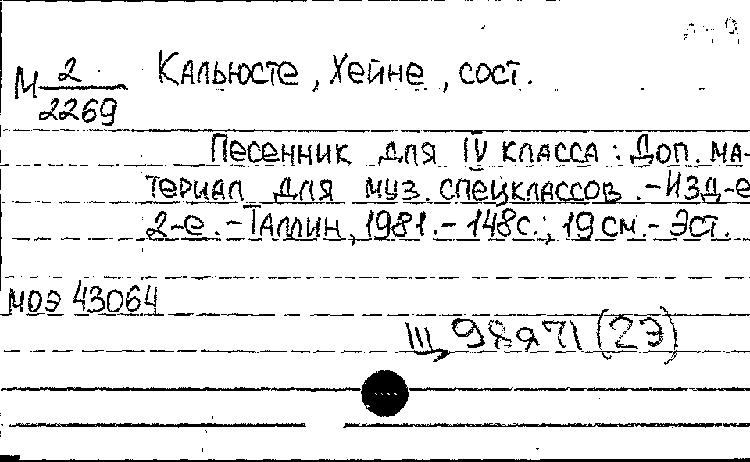 М 2/2269 Кальюсте, Хейне, сост.
Песенник для IV класса: Доп. ма-
териал для муз. спецклассов. – Изд-е
2-е. – Таллин, 1981. – 148с.; 19 см. – Эст.
МОЭ 43064
Щ 98я71 (2Э)